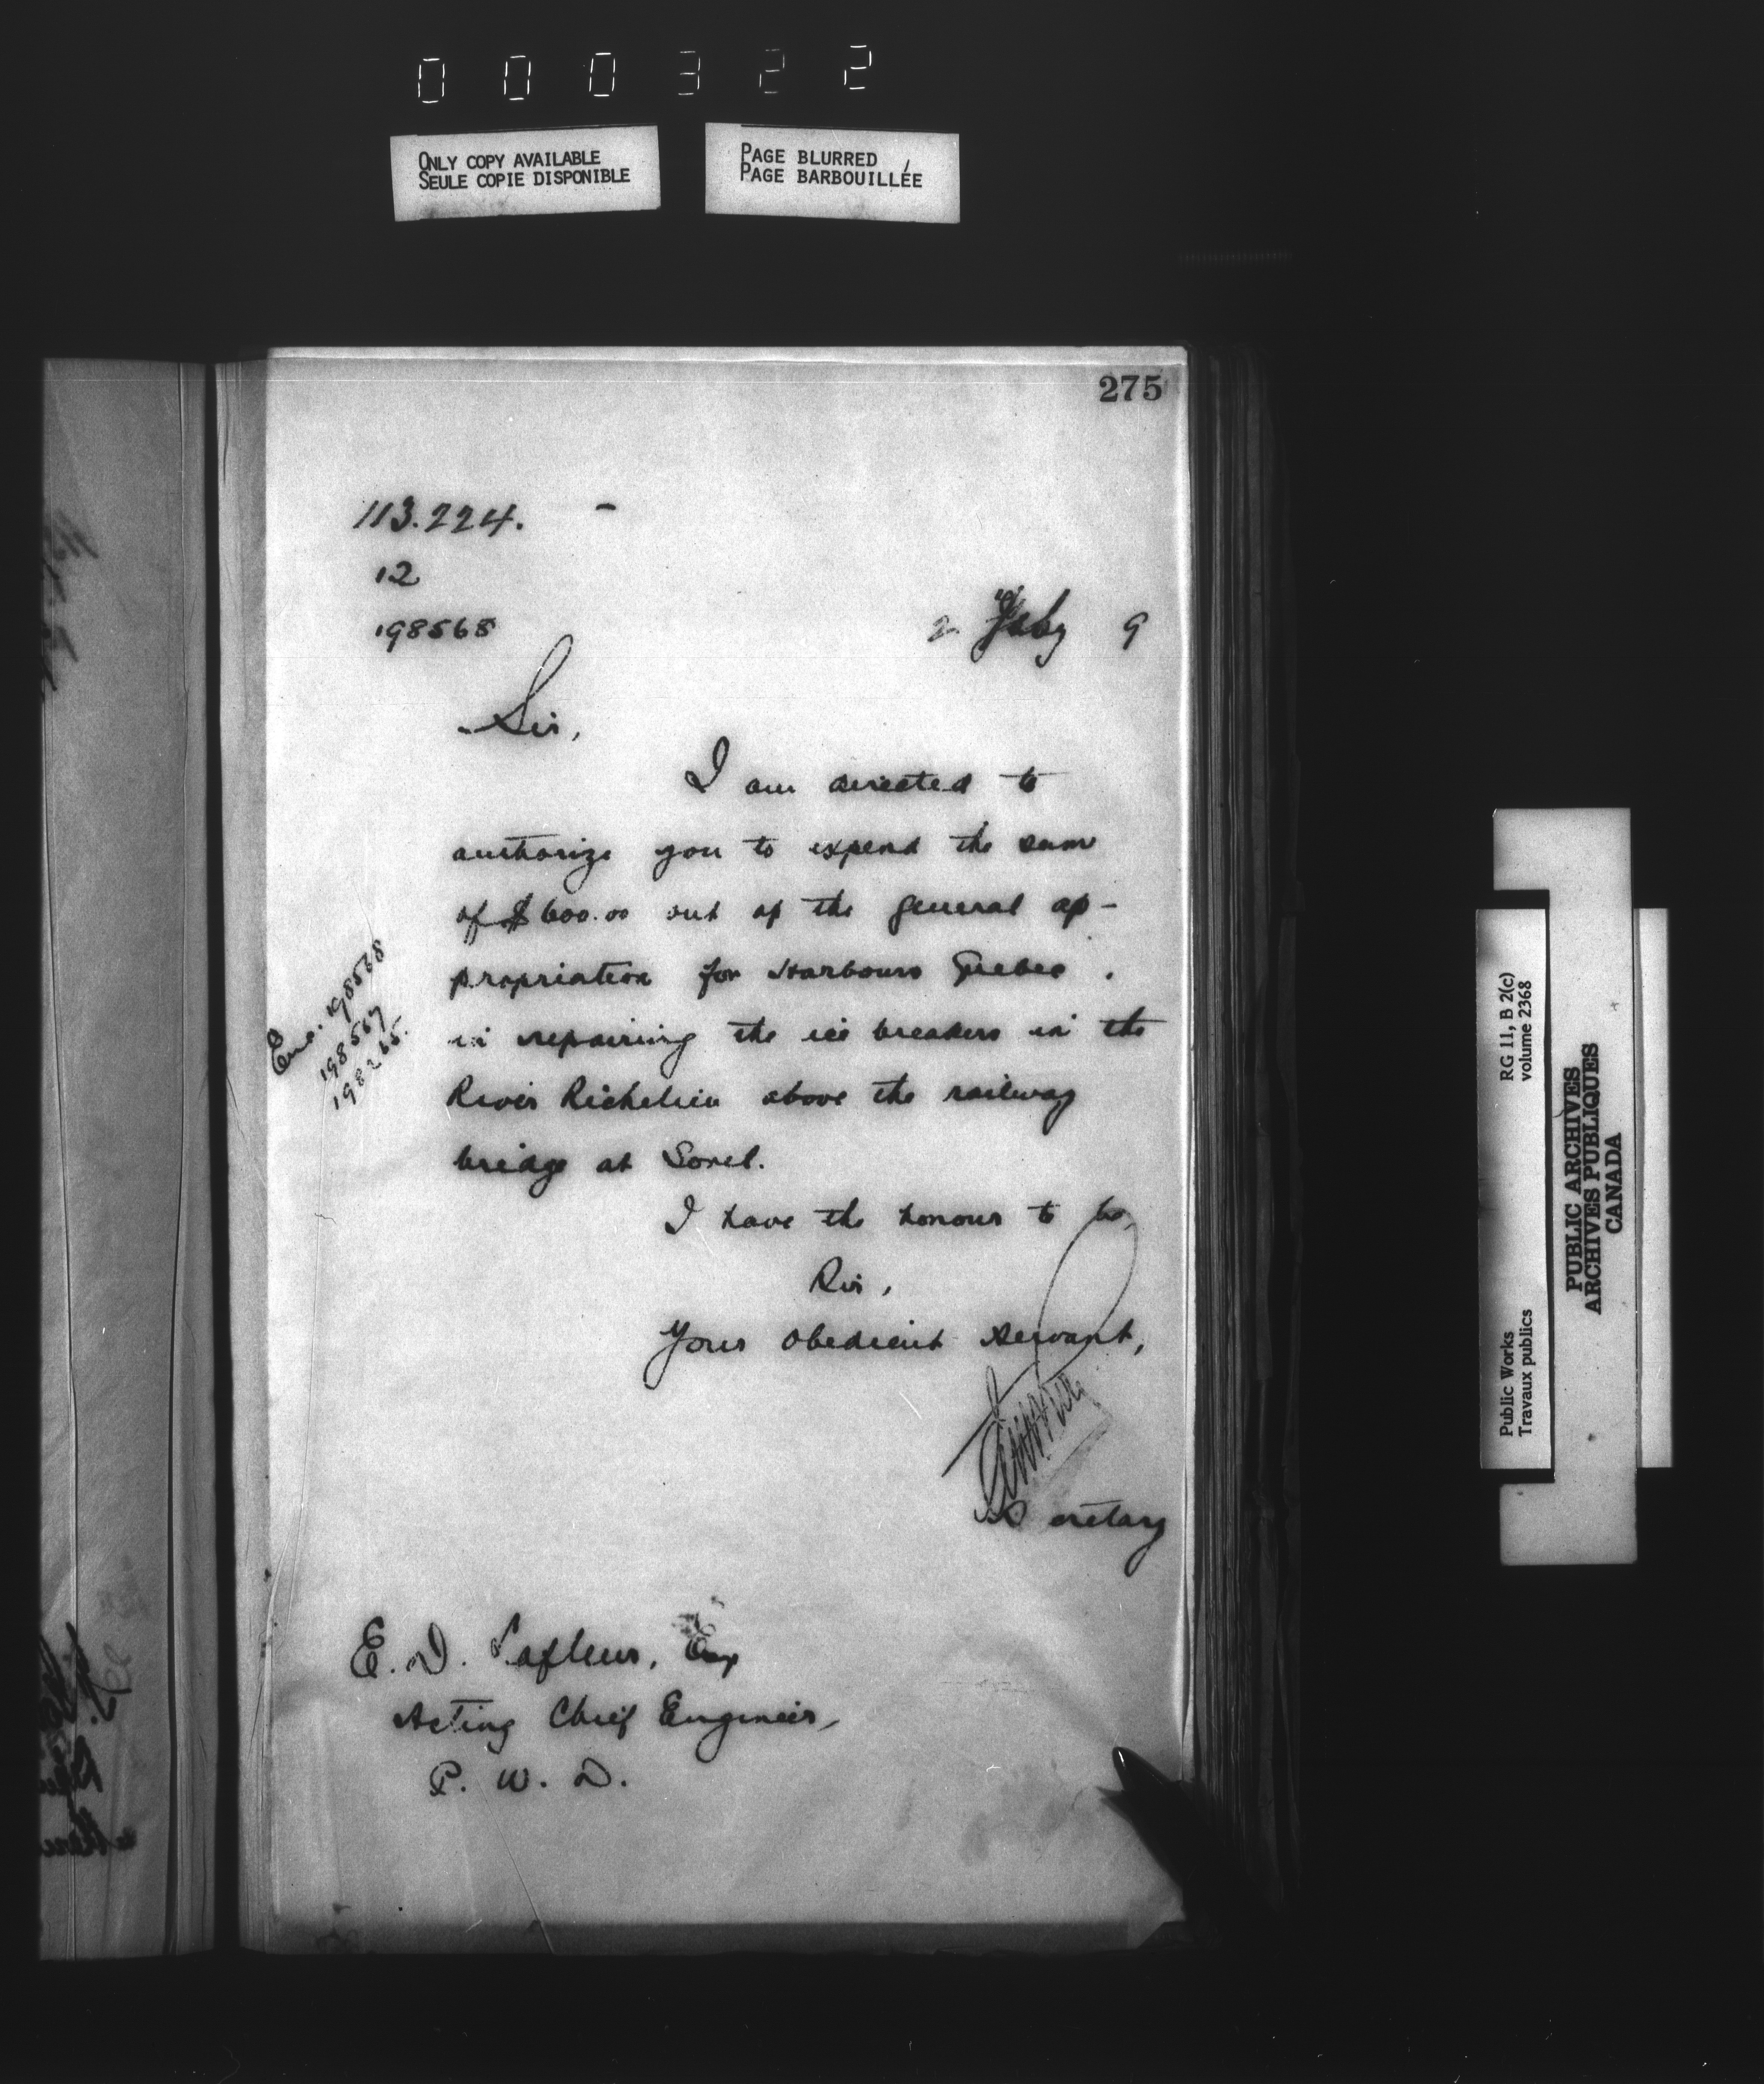 000322
ONLY COPY AVAILABLE
SEULE COPIE DISPONIBLE
PAGE BLURRED
PAGE BARBOUILLÉE
275
113.224.
12
198568
2 Feby 9
Sir,
I am directed to
authorize you to expend the sum
of $600.00 out of the general ap-
propriation for Harbours Quebec.
in repairing the ice breakers in the
River Richelieu above the railway
bridge at Sorel.
Enc. 198568
198567
198265.
I have the honour to be,
Sir,
Your obedient servant,
Secretary
E. D. Lafleur, Esq
Acting Chief Engineer,
P. W. D.
Public Works
Travaux publics
RG 11, B 2(c)
volume 2368
PUBLIC ARCHIVES
ARCHIVES PUBLIQUES
CANADA